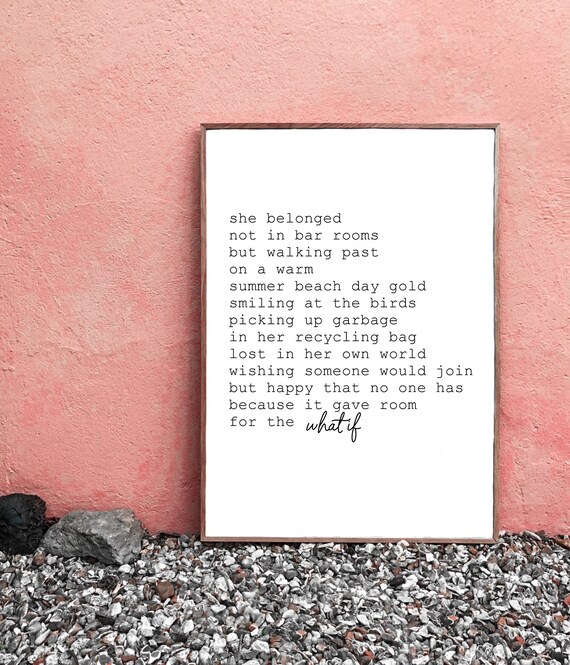 she belonged
not in bar rooms
but walking past
on a warm
summer beach day gold
smiling at the birds
picking up garbage
in her recycling bag
lost in her own world
wishing someone would join
but happy that no one has
because it gave room
for the what if